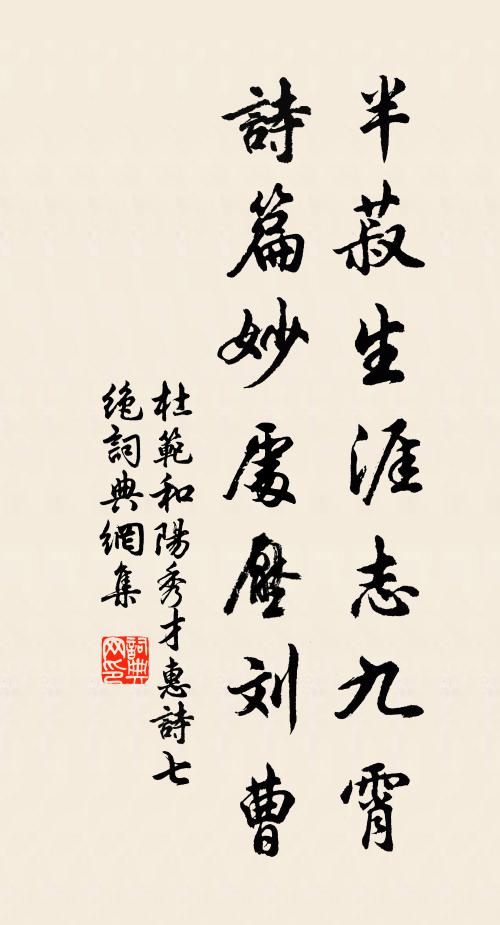 半菽生涯志九霄
詩篇妙處壓刘曹
杜範和陽秀才惠詩七
絶詞典網集
詞典網印